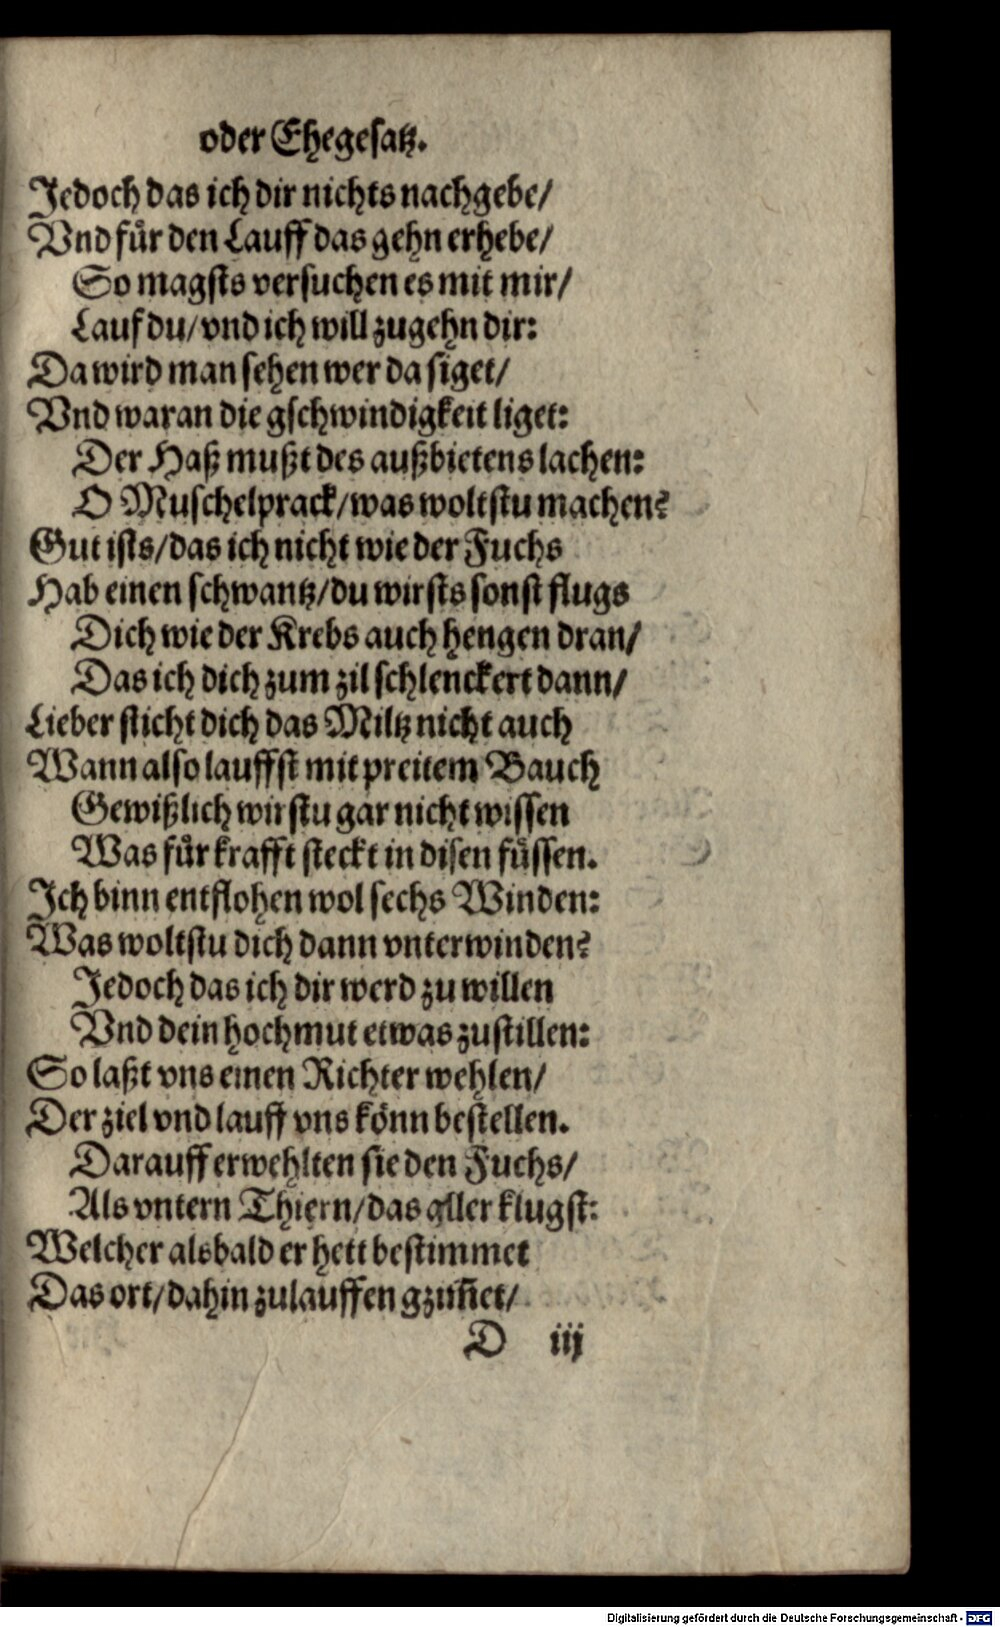 oder Ehegesatz.
Jedoch das ich dir nichts nachgebe/
Vnd für den Lauff das gehn erhebe/
So magsts versuchen es mit mir/
Lauf du/vnd ich will zugehn dir:
Da wird man sehen wer da siget/
Vnd waran die gschwindigkeit liget:
Der Haß mußt des außbietens lachen:
O Muschelprack/was woltstu machen?
Gut ists/das ich nicht wie der Fuchs
Hab einen schwantz/du wirsts sonst flugs
Dich wie der Krebs auch hengen dran/
Das ich dich zum zil schlenckert dann/
Lieber sticht dich das Miltz nicht auch
Wann also lauffst mit preitem Bauch
Gewißlich wirstu gar nicht wissen
Was für krafft steckt in disen füssen.
Ich binn entflohen wol sechs Winden:
Was woltstu dich dann vnterwinden?
Jedoch das ich dir werd zu willen
Vnd dein hochmut etwas zustillen:
So laßt vns einen Richter wehlen/
Der ziel vnd lauff vns könn bestellen.
Darauff erwehlten sie den Fuchs/
Als vntern Thiern/das aller klugst:
Welcher alsbald er hett bestimmet
Das ort/dahin zulauffen
D iij
Digitalisierung gefördert durch die Deutsche Forschungsgemeinschaft - DFG